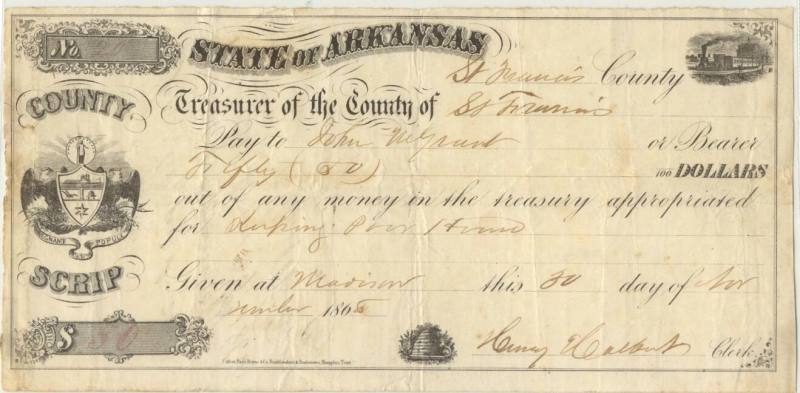 No.
STATE OF ARKANSAS
St Francis County
COUNTY
Treasurer of the County of St Francis
Pay to John McGrant or Bearer
Fifty (50) 100 DOLLARS
out of any money in the treasury appropriated
for Keeping Poor House
REGNANT POPULI
SCRIP
Given at Madison this 30 day of Nov
ember 186
$ 50
Henry Halbert Clerk